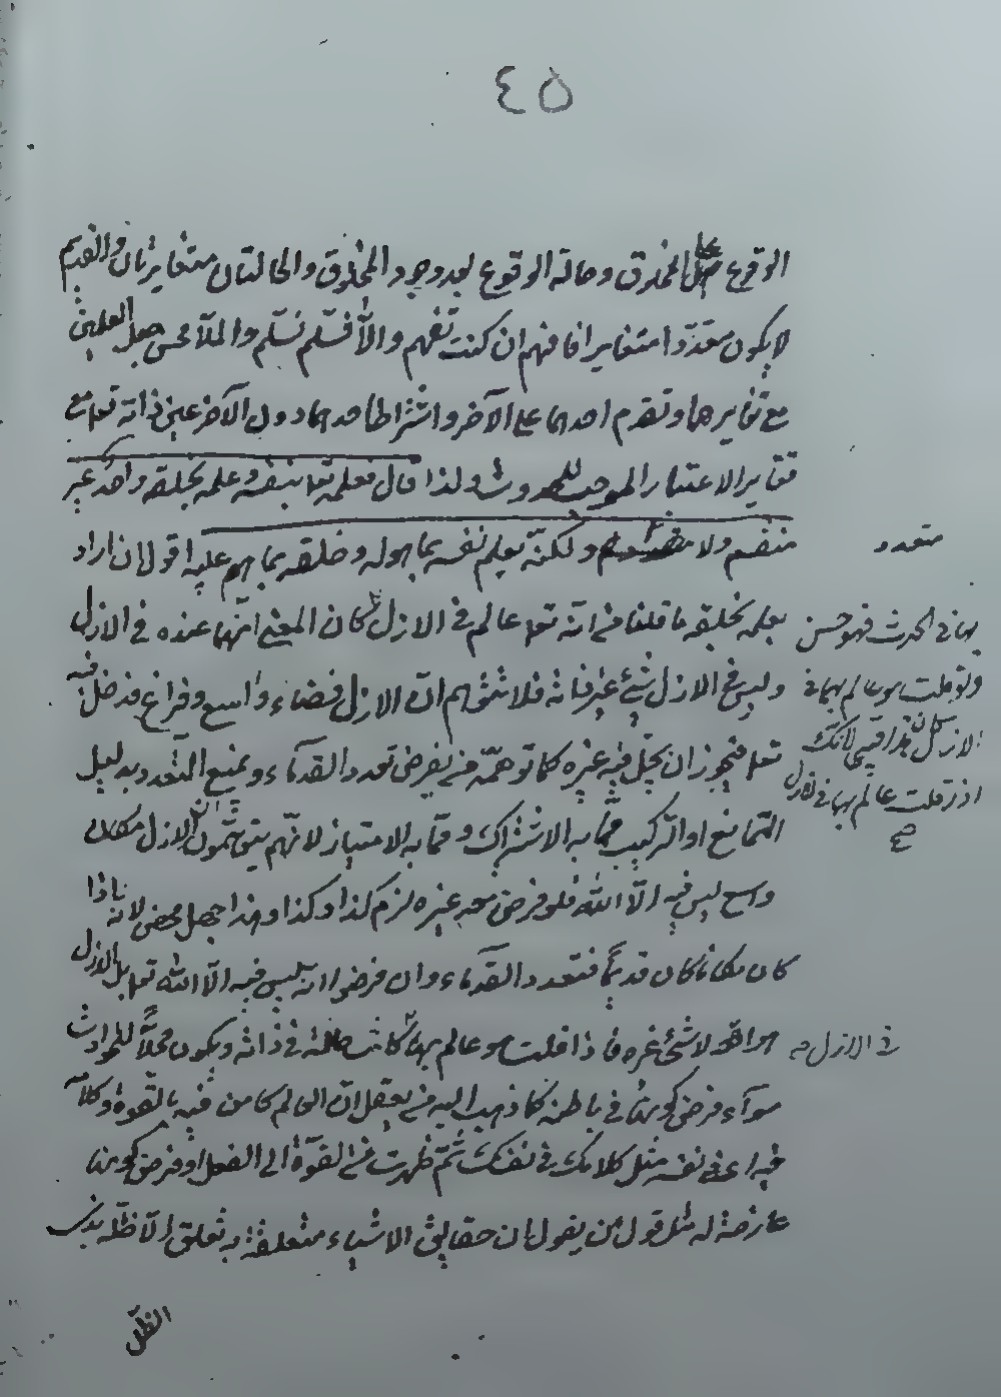 ٤٥
الوقوع على المخلوق وحالة الوقوع بعد وجود المخلوق والحالتان متغايرتان والقديم
لا يكون متعددا متغايرا فافهم ان كنت تفهم والّا فسلّم تسلم والملّا محسن جعل العلمين
مع تغايرهما وتقدم احدهما على الآخر واشتراط احدهما دون الآخر عين ذاته تعالى مع
تغاير الاعتبار الموجب للحدوث ولذا قال فعلمه تعا بنفسه وعلمه بخلقه واحد غير
منقسم ولا متعدد ولكنّه يعلم نفسه بما هو له وخلقه بما هم عليه اقول ان اراد
بعلمه بخلقه ما قلنا من انه تعا عالم في الازل بها في الحدث فهو حسن
ولو قلت هو عالم بها في الازل كان المعنى انّها عنده في الازل
وليس في الازل شئ غير ذاته فلا تتوهم انّ الازل فضاء واسع وفراغ قد حلّ فيه
تعا فيجوز ان يحلّ فيه غيره كما توهمّه من يفرض تعدد القدماء ويمنع التعدد بدليل
التمانع او التركيب ممّا به الاشتراك وممّا به الامتياز لانّهم يتوهّمون ان الازل مكان
واسع ليس فيه الّا الله فلو فرض معه غيره لزم كذا وكذا وهذا جهل محض لانه اذا
كان مكانا كان قديما فتعدد القدماء وان فرض انه ليس فيه الّا الله تعا بل الازل
هو الله لا شئ غيره فاذا قلت هو عالم بها في الازل كانت حالّة في ذاته ويكون محلّاً للحوادث
سوآء فرض كونها في باطنه كما ذهب اليه من يعقل انّ العالم كامن فيه بالقوة وكلّه
فيه اى في نفسه مثل كلامك في نفسك ثمّ ظهرت من القوّة الى الفعل او فرض كونها
عارضة له مثل قول من يقول ان حقايق الاشياء متعلقة به تعلق الّا ظلّه بذى
الظلّ